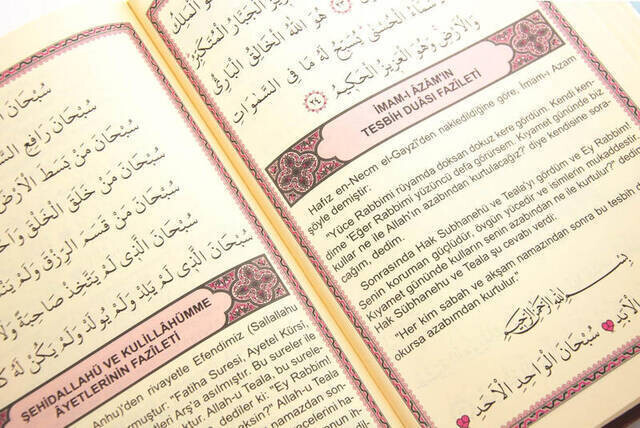 سُبْحَانَ ا
سُبْحَانَ رَافِعِ السَّ
سُبْحَانَ مَنْ بَسَطَ الْأَرْضَ
سُبْحَانَ مَنْ خَلَقَ الْخَلْقَ وَاَحْ
سُبْحَانَ مَنْ قَسَمَ الرِّزْقَ وَلَمْ يَنْ
سُبْحَانَ الَّذِي لَمْ يَتَّخِذْ صَاحِبَةً وَلَا
سُبْحَانَ الَّذِي لَمْ يَلِدْ وَلَمْ يُولَدْ وَلَمْ يَكُنْ لَهُ كُ
ŞEHİDALLAHÜ VE KULİLLÂHÜMME
ÂYETLERİNİN FAZİLETİ
Anhu)'den rivayetle Efendimiz (Sallallahu
rmuştur: "Fatiha Suresi, Ayetel Kürsi,
etleri Arş'a asılmıştır. Bu sureler ile
ktur. Allah-u Teala, bu surele-
dediler ki: "Ey Rabbimi
eksin?" Allah-u Teala
namazdan son-
الْعَزِيزُ الْجَبَّارُ الْمُتَكَبِّرُ
هُوَ اللَّهُ الْخَالِقُ الْبَارِئُ
سْمَاءُ الْحُسْنَى يُسَبِّحُ لَهُ مَا فِي السَّمٰوَاتِ
وَالْأَرْضِ وَهُوَ الْعَزِيزُ الْحَكِيمُ ٢٤
İMAM-I ÂZÂM'IN
TESBİH DUÂSI FAZİLETİ
Hafız en-Necm el-Gayzî'den nakledildiğine göre, İmam-ı Azam
şöyle demiştir:
"Yüce Rabbimi rüyamda doksan dokuz kere gördüm. Kendi ken-
dime 'Eğer Rabbimi yüzüncü defa görürsem. Kıyamet gününde biz
kullar ne ile Allah'ın azabından kurtulacağız? diye kendisine sora-
cağım, dedim.
Sonrasında Hak Subhanehü ve Teala'yı gördüm ve Ey Rabbim!
Senin koruman güçlüdür, övgün yücedir ve isimlerin mukaddestir.
Kıyamet gününde kulların senin azabından ne ile kurtulur?" dedim.
Hak Sübhanehu ve Teala şu cevabı verdi:
"Her kim sabah ve akşam namazından sonra bu tesbih
okursa azabımdan kurtulur."
بِسْمِ اللهِ الرَّحْمٰنِ الرَّحِيمِ
سُبْحَانَ الْوَاحِدِ الْاَحَدِ